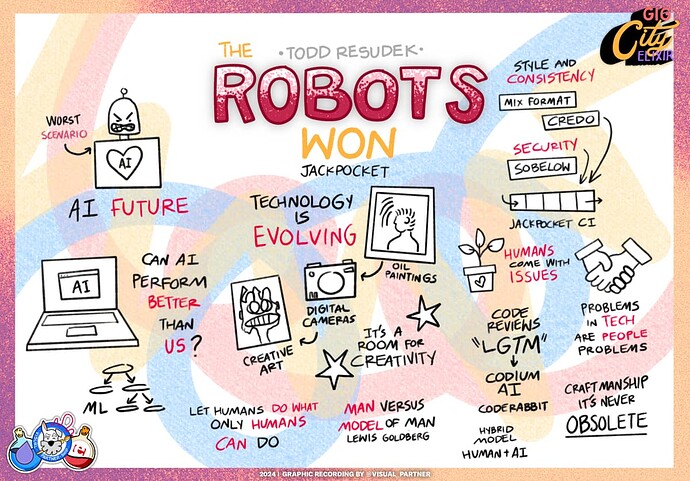 THE
•TODD RESUDEK•
ROBOTS
WON
JACKPOCKET
GIG
City
ELIXIR
WORST
SCENARIO
AI
AI FUTURE
AI
CAN AI
PERFORM
BETTER
THAN
US?
ML
TECHNOLOGY
IS
EVOLVING
OIL
PAINTINGS
DIGITAL
CAMERAS
CREATIVE
ART
IT'S A
ROOM FOR
CREATIVITY
LET HUMANS DO WHAT
ONLY HUMANS
CAN DO
MAN VERSUS
MODEL OF MAN
LEWIS GOLDBERG
STYLE AND
CONSISTENCY
MIX FORMAT
CREDO
SECURITY
SOBELOW
JACKPOCKET CI
HUMANS
COME WITH
ISSUES
CODE
REVIEWS
"LGTM"
CODIUM
AI
CODERABBIT
HYBRID
MODEL
HUMAN+AI
PROBLEMS
IN TECH
ARE PEOPLE
PROBLEMS
CRAFTMANSHIP
IT'S NEVER
OBSOLETE
2024 | GRAPHIC RECORDING BY @VISUAL_PARTNER